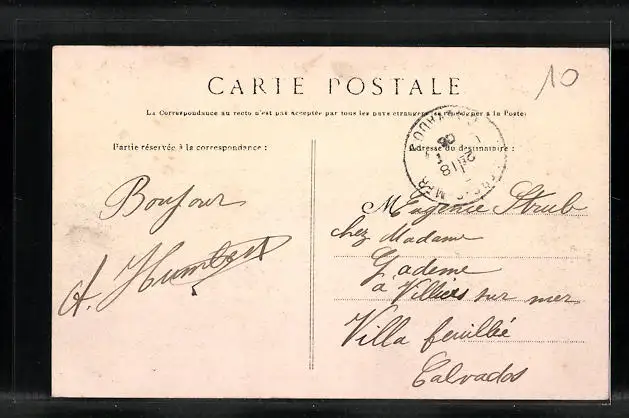 10
CARTE POSTALE
La Correspondance au recto n'est pas acceptée par tous les pays étrangers se renseigner à la Poste
Partie réservée à la correspondance :
Adresse du destinataire :
Bonjour
A. Humbert
M Eugenie Strub
chez Madame
Gademe
a Villiers sur mer
Villa feuillée
Calvados